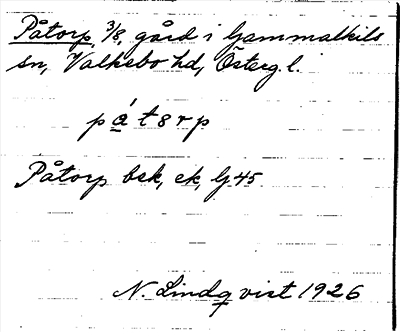 Påtorp, 3/8, gård i Gammalkils
sn, Valkebo hd, Österg. l.
pátɵrp
Påtorp bek, ek, Gj 45
N. Lindqvist 1926